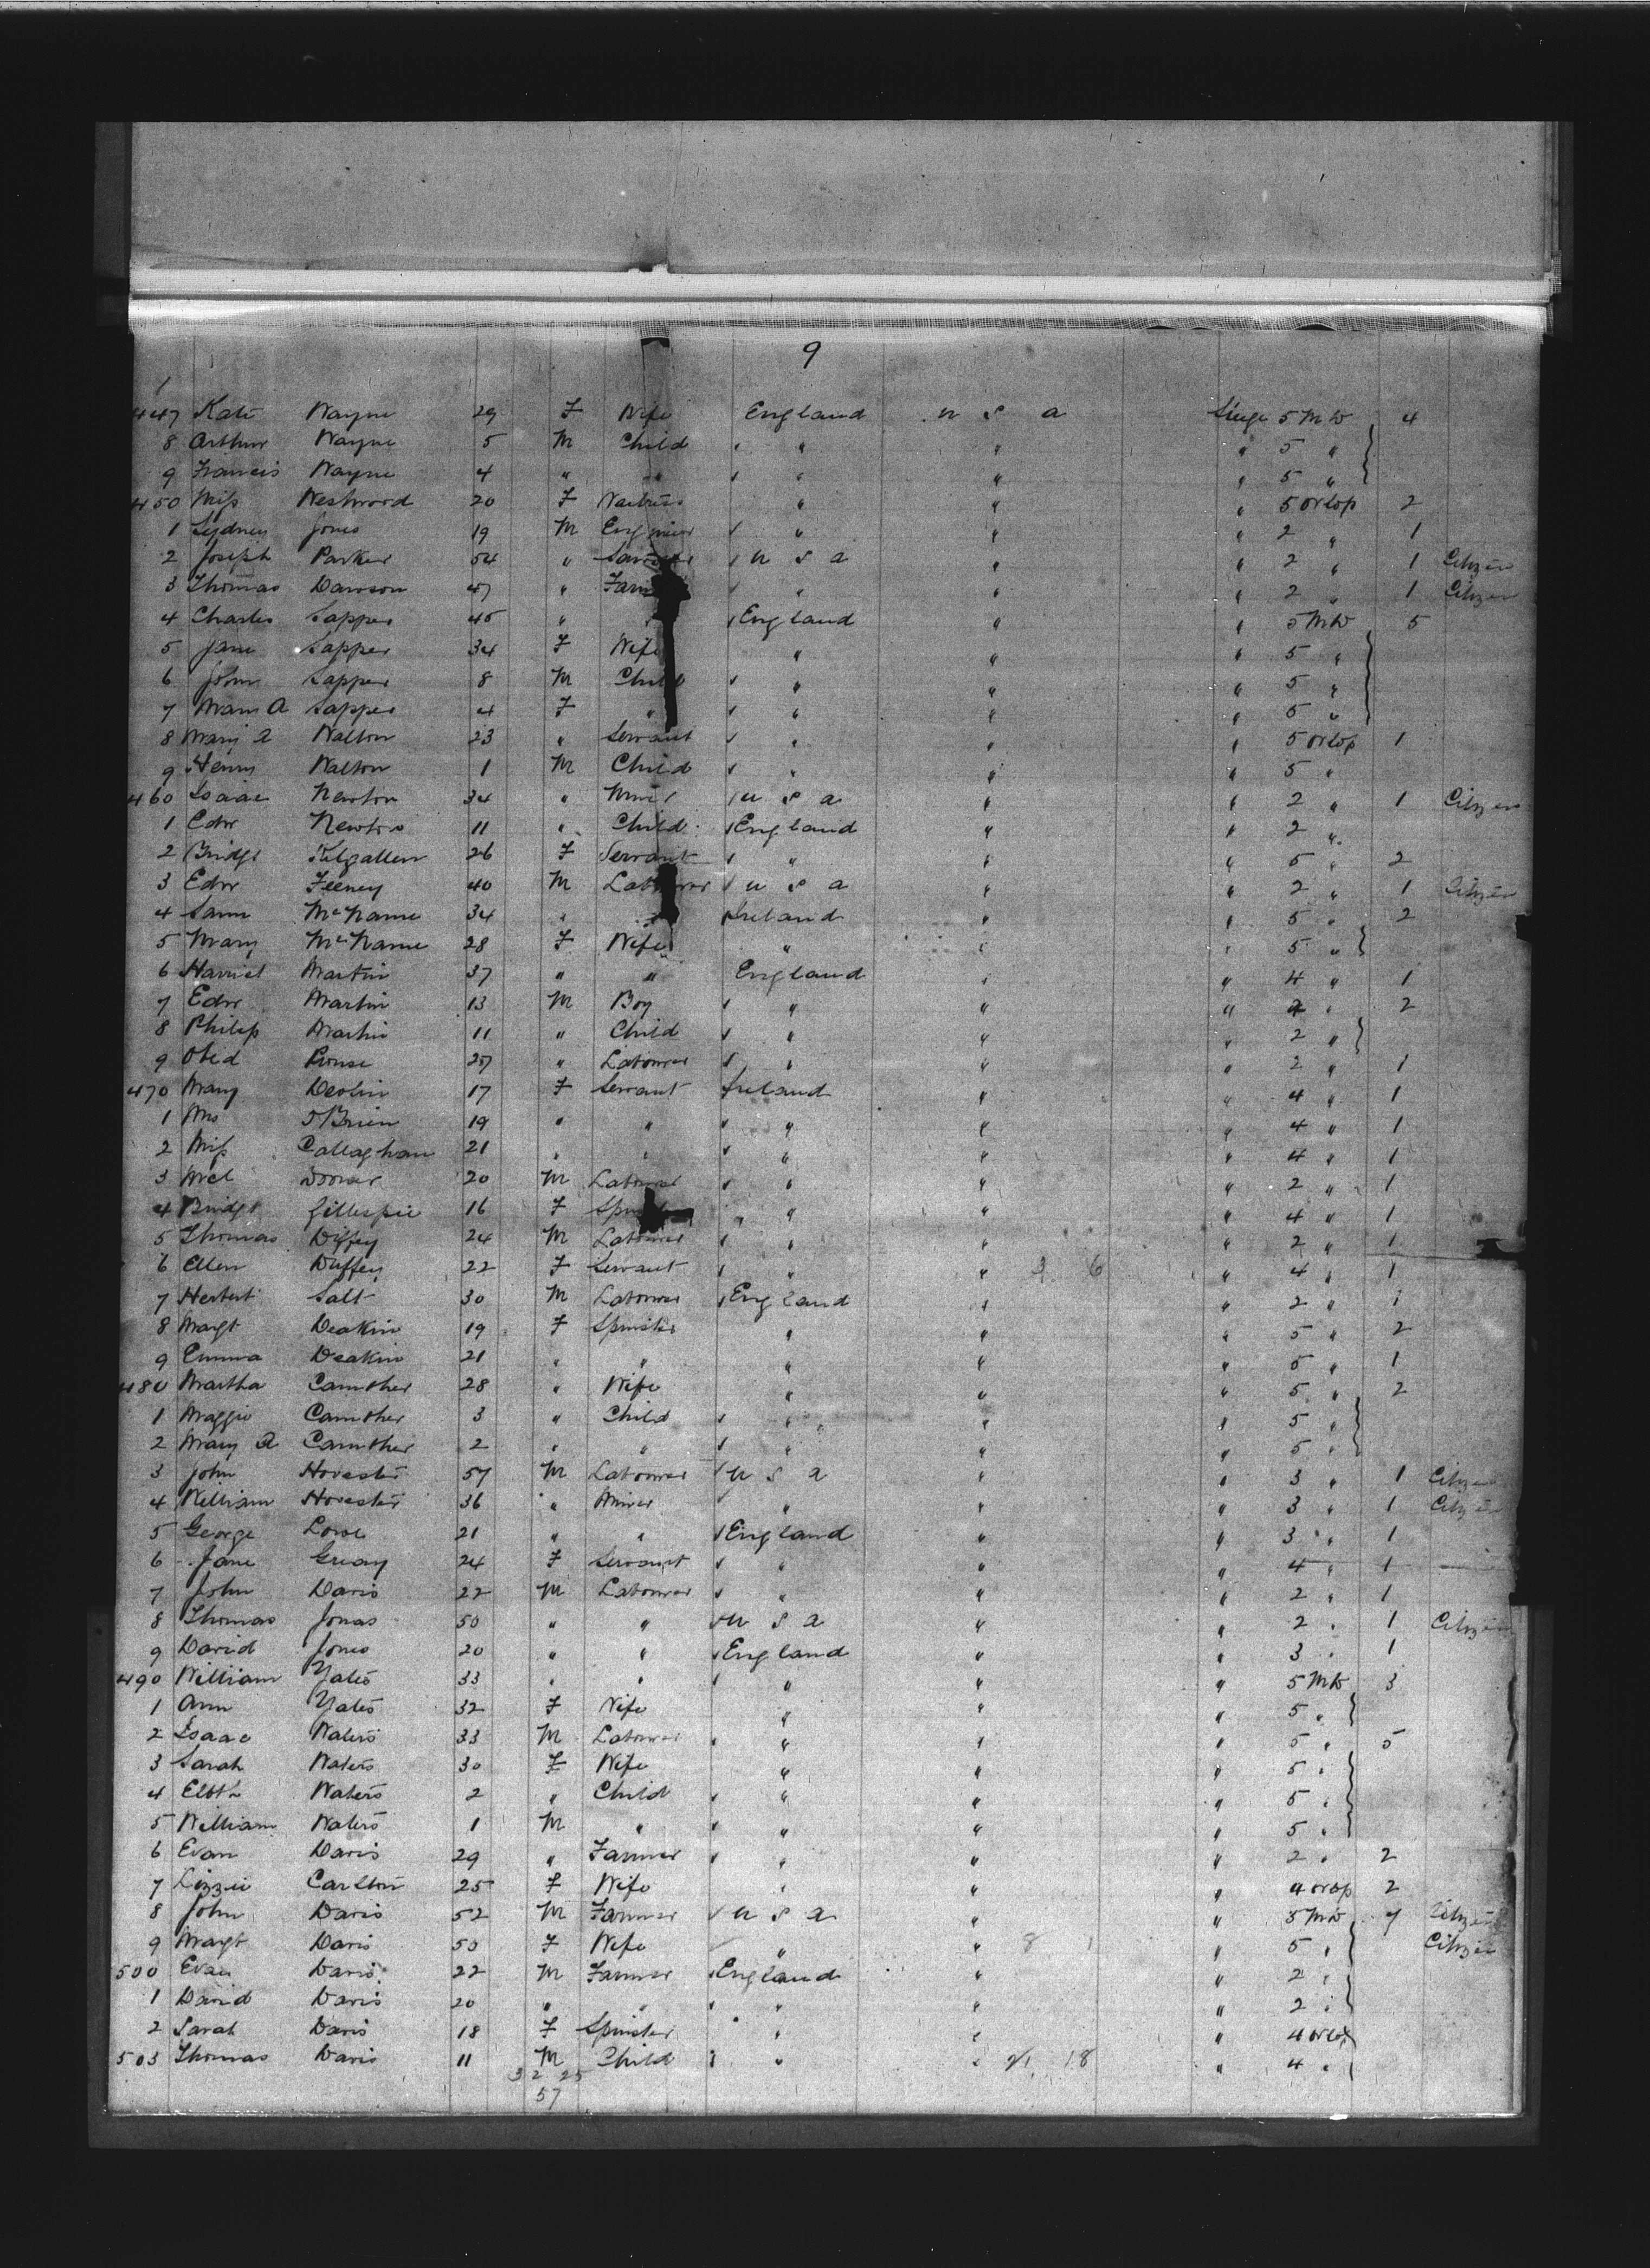 9
447 Kate Wayne 29 F Wife England U S A 5 MW 4
8 Arthur Wayne 5 M Child " " " 5 "
9 Francis Wayne 4 " " " " " 5 "
450 Miss Westwood 20 F " " " 5 Orlop 2
1 Sydney Jones 19 M Engineer " " " 2 " 1
2 Joseph Parker 54 " U S A " " 2 " 1 Citizen
3 Thomas Dawson 47 " " " " 2 " 1 Citizen
4 Charles Sapper 45 " England " " 5 MW 5
5 Jane Sapper 34 F Wife " " " 5 "
6 John Sapper 8 M Child " " " 5 "
7 A Sapper 4 F " " " " 5 "
8 Mary A Walton 23 " Servant " " " 5 Orlop 1
9 Henry Walton 1 M Child " " " 5 "
460 Isaac Newton 34 " U S A " " 2 " 1 Citizen
1 Edw Newton 11 " Child England " " 2 "
2 Bridgt Kilgallen 26 F Servant " " " 5 " 2
3 Edw Feeney 40 M Labourer U S A " " 2 " 1 Citizen
4 McName 34 " " Ireland " " 5 " 2
5 Mary McName 28 F Wife " " " 5 "
6 Harriet Martin 37 " " England " " 4 " 1
7 Edw Martin 13 M Boy " " " 2 " 2
8 Philip Martin 11 " Child " " " 2 "
9 Obed 27 " Labourer " " " 2 " 1
470 Mary Devlin 17 F Servant Ireland " " 4 " 1
1 Mrs O'Brien 19 " " " " " 4 " 1
2 Miss Callaghan 21 " " " " " 4 " 1
3 Mcl 20 M Labourer " " " 2 " 1
4 Bridgt Gillespie 16 F " " " 4 " 1
5 Thomas Diffey 24 M Labourer " " " 2 " 1
6 Ellen Duffey 22 F Servant " " " 4 " 1
7 Herbert Salt 30 M Labourer England " " 2 " 1
8 Margt Deakin 19 F Spinster " " " 5 " 2
9 Emma Deakin 21 " " " " " 5 " 1
480 Martha Carnother 28 " Wife " " " 5 " 2
1 Maggie Carnother 3 " Child " " " 5 "
2 Mary A Carnother 2 " " " " " 5 "
3 John Hovester 57 M Labourer U S A " " 3 " 1 Citizen
4 William Hovester 36 " Miner " " " 3 " 1 Citizen
5 George Lowe 21 " " England " " 3 " 1
6 Jane 24 F Servant " " " 4 " 1
7 John Davis 22 M Labourer " " " 2 " 1
8 Thomas Jonas 50 " " U S A " " 2 " 1 Citizen
9 David Jones 20 " " England " " 3 " 1
490 William Yates 33 " " " " " 5 MW 3
1 Ann Yates 32 F Wife " " " 5 "
2 Isaac Waters 33 M Labourer " " " 5 " 5
3 Sarah Waters 30 F Wife " " " 5 "
4 Elbth Waters 2 " Child " " " 5 "
5 William Waters 1 M " " " " 5 "
6 Evan Davis 29 " Farmer " " " 2 " 2
7 Lizzie Carlton 25 F Wife " " " 4 Orlop 2
8 John Davis 52 M Farmer U S A " " 5 MW 7 Citizen
9 Margt Davis 50 F Wife " " 8 1 " 5 " Citizen
500 Evan Davis 22 M Farmer England " " 2 "
1 David Davis 20 " " " " " 2 "
2 Sarah Davis 18 F Spinster " " " 4 Orlop
503 Thomas Davis 11 M Child " " 18 " 4 "
32 25
57